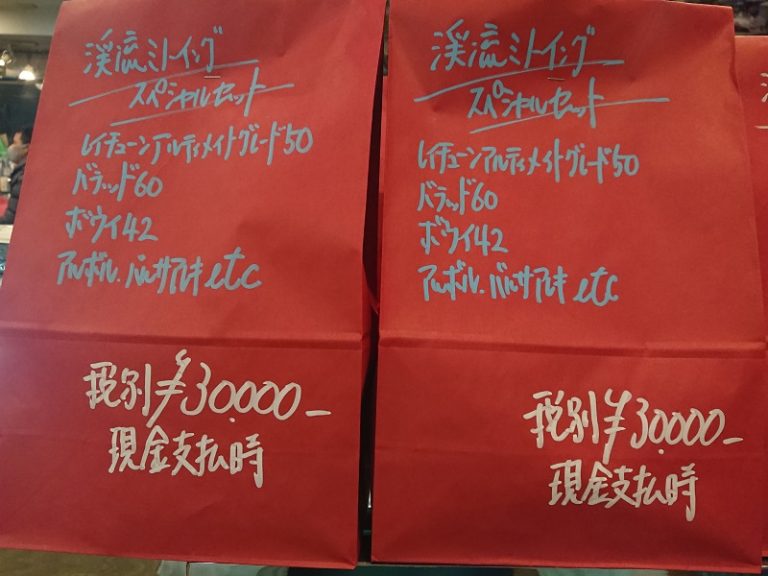 渓流ミトイング
スペシャルセット
レイチューンアルティメイトグレード50
バラッド60
ボウイ42
アルボル、バルサアレキ etc
税別¥30.000-
現金支払時
渓流ミトイング
スペシャルセット
レイチューンアルティメイトグレード50
バラッド60
ボウイ42
アルボル、バルサアレキ etc
税別¥30.000-
現金支払時